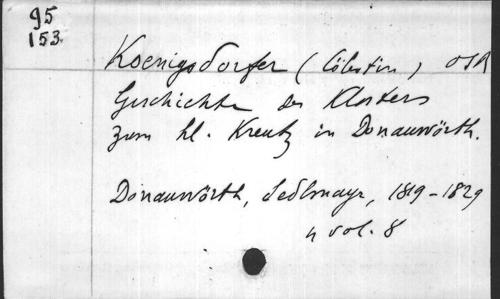 95
153.
Koenigsdorfer (Cölestin) OSB
Geschichte des Klosters
zum hl. Kreutz in Donauwörth.
Donauwörth, Sedlmayr, 1819-1829
4 vol. 8